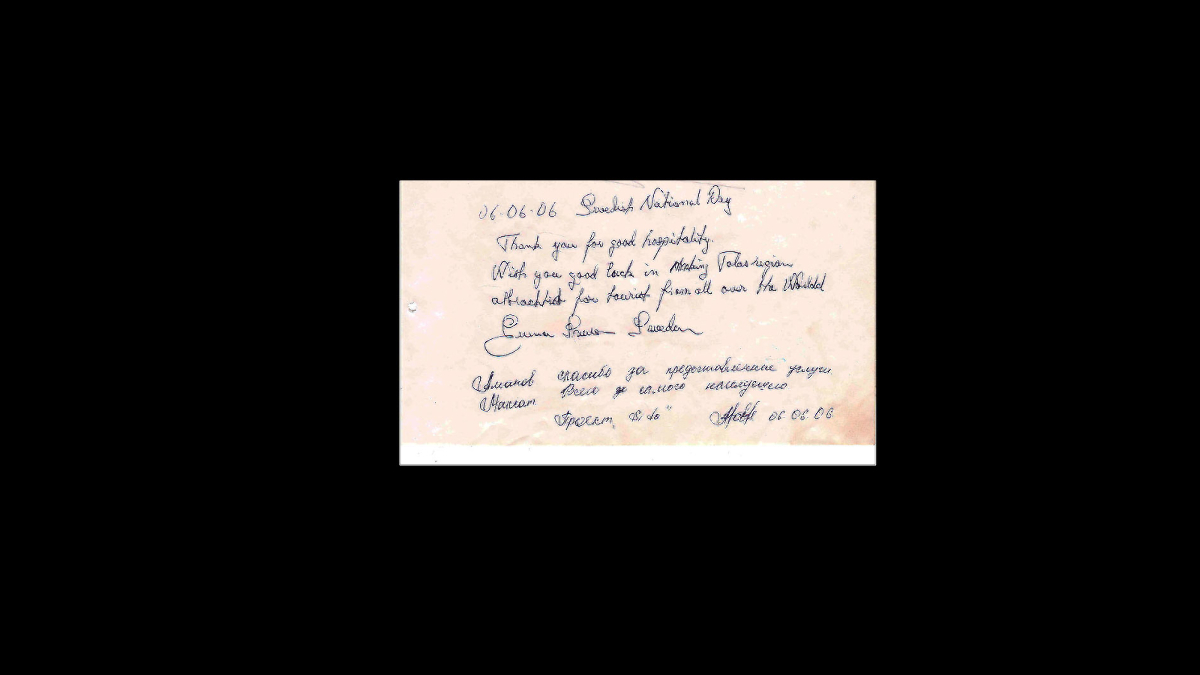 06-06-06 Swedish National Day
Thank you for good hospitality.
Wish you good luck in making Talas region
attractish for tourist from all over the World
Emma Sweden
Аманов спасибо за предоставление услуги
Марат Всего самого наилучшего
Проект 06 06 06